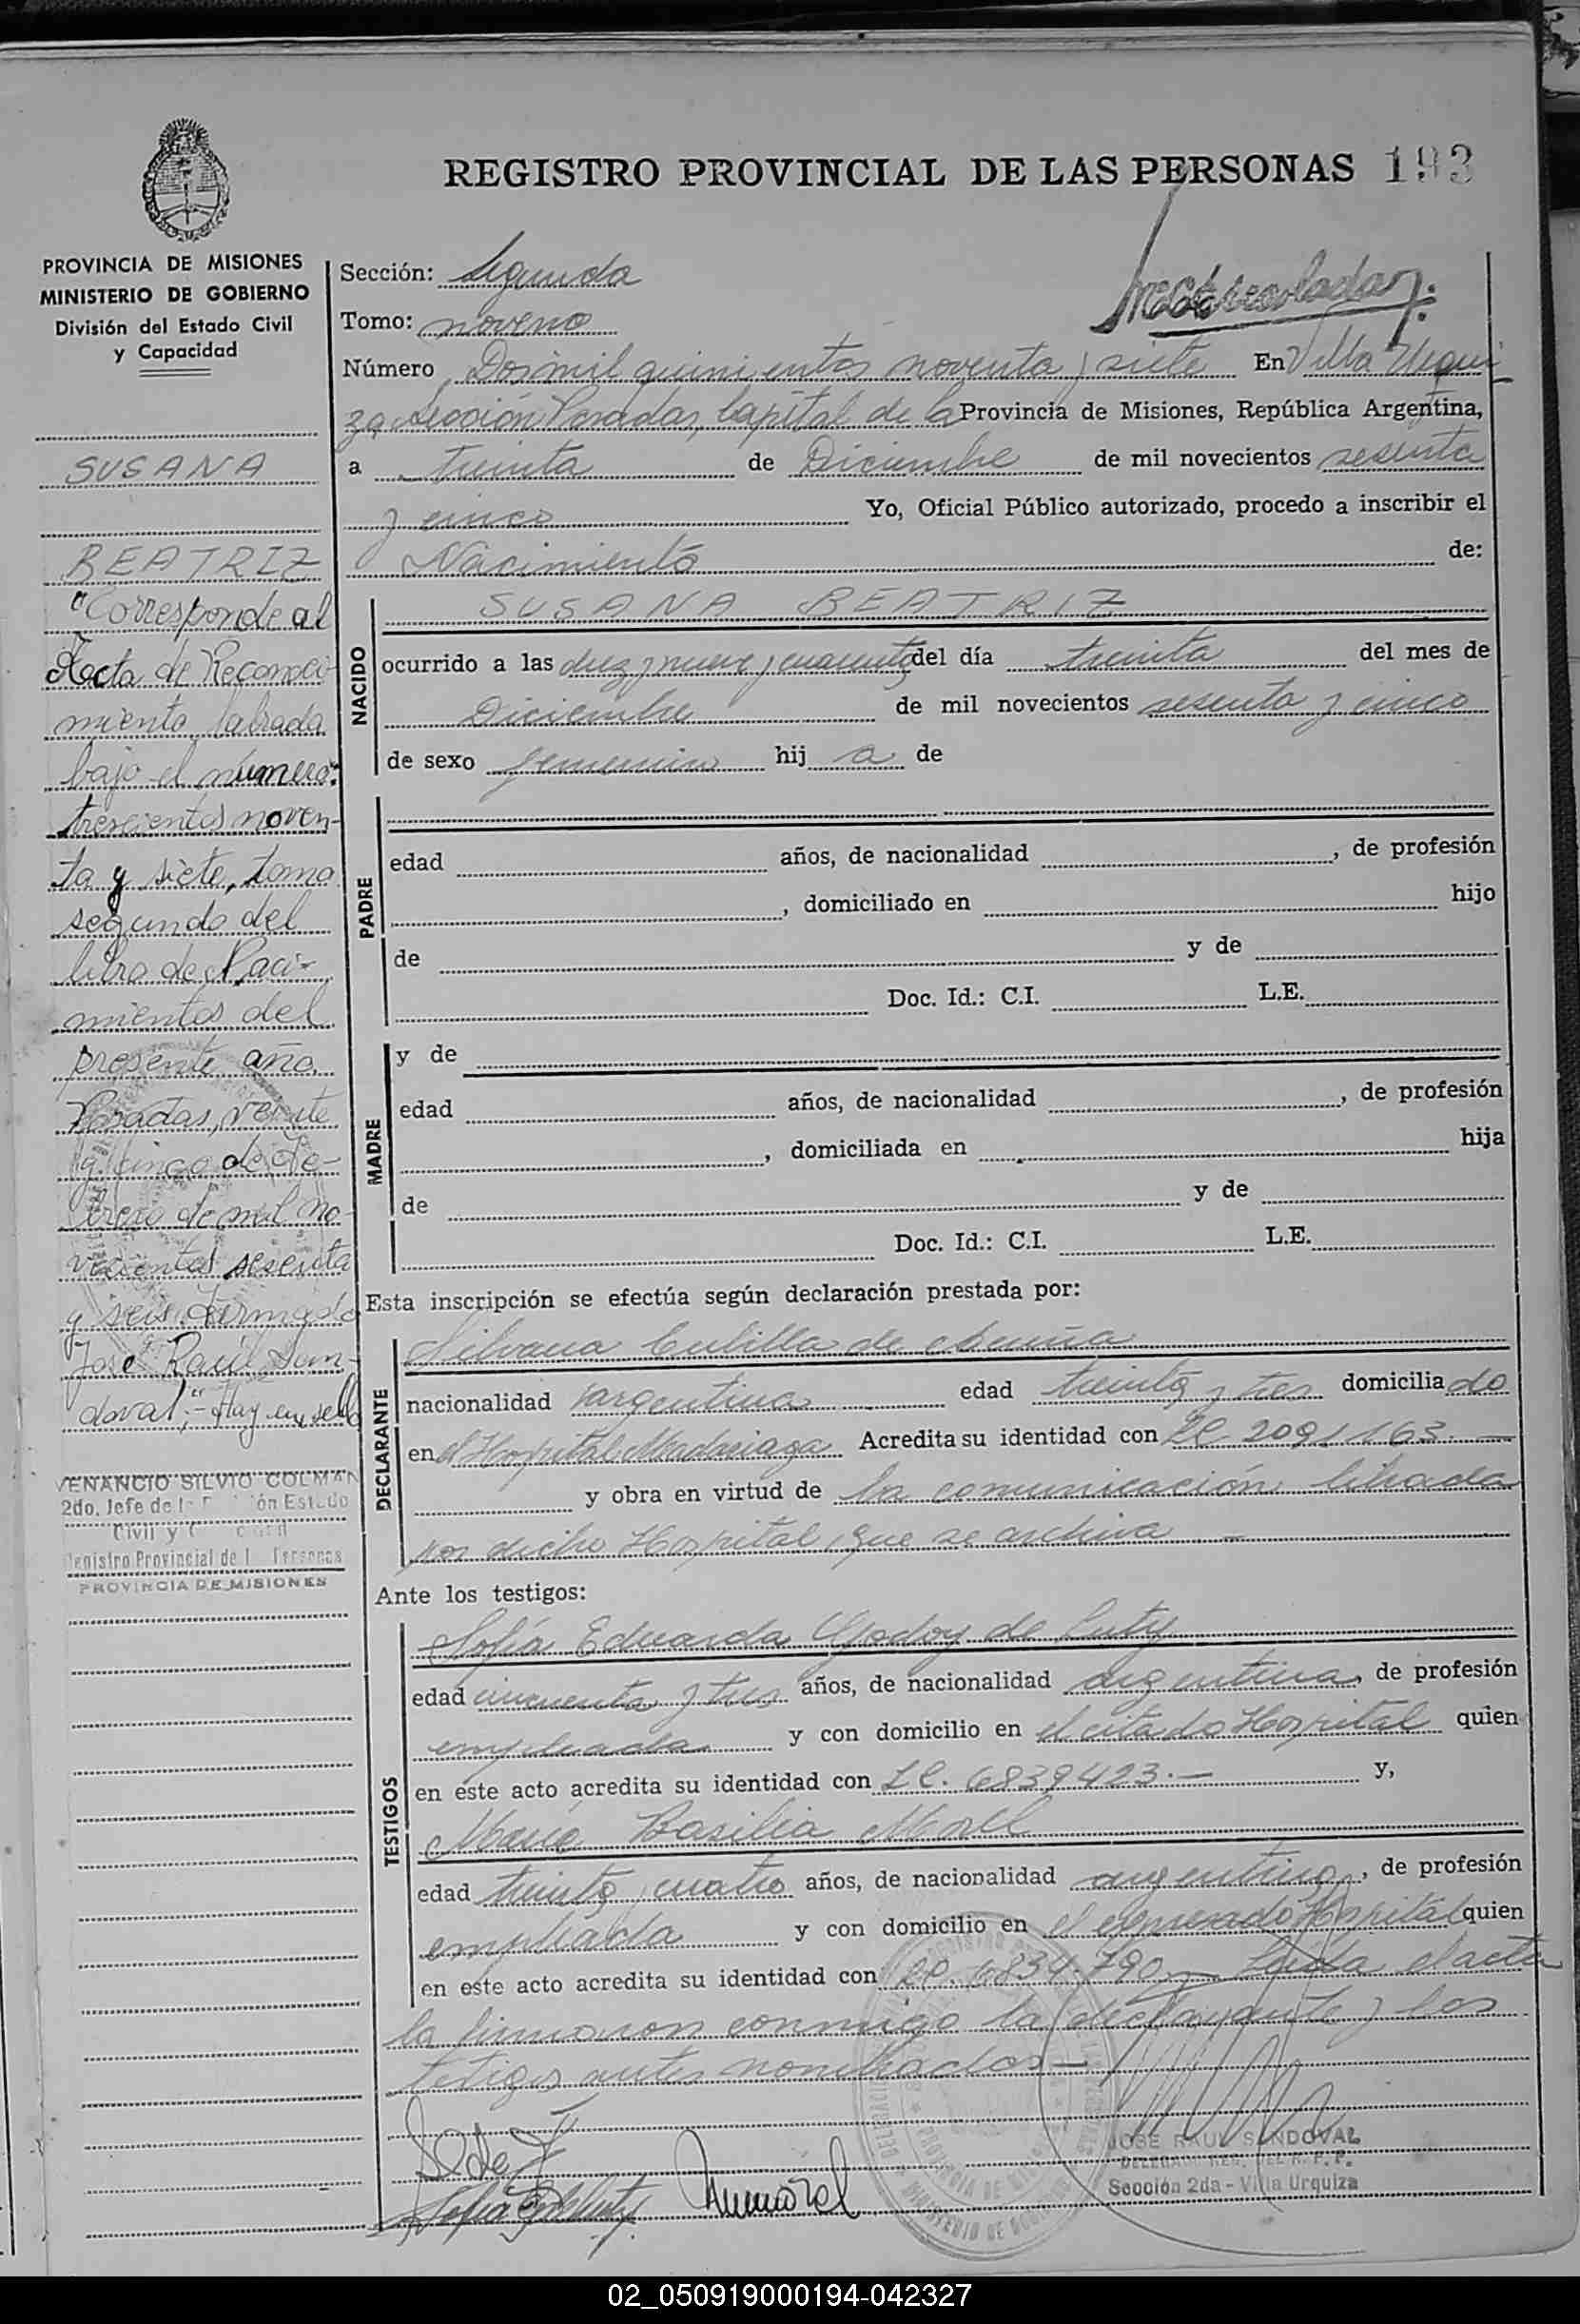 REGISTRO PROVINCIAL DE LAS PERSONAS 193
PROVINCIA DE MISIONES
MINISTERIO DE GOBIERNO
División del Estado Civil
y Capacidad
SUSANA
BEATRIZ
"Corresponde al
Acta de Reconoci-
miento labrada
bajo el número:
trescientos noven-
ta y siete, tomo
segundo del
libro de Naci-
mientos del
presente año.
Posadas, veinte
y cinco de Fe-
brero de mil no-
vecientos sesenta
y seis. Firmado
José Raúl San-
doval".- Hay un sello
VENANCIO SILVIO COLMAN
2do. Jefe de l Estado
Civil y
Registro Provincial de l Personas
PROVINCIA DE MISIONES
Sección: Segunda
Tomo: noveno
Número Dos mil quinientos noventa y siete En Villa Urqui
za, Sección Posadas, Capital de la Provincia de Misiones, República Argentina,
a treinta de Diciembre de mil novecientos sesenta
y cinco Yo, Oficial Público autorizado, procedo a inscribir el
Nacimiento de:
NACIDO
SUSANA BEATRIZ
ocurrido a las diez y nueve y cuarenta del día treinta del mes de
Diciembre de mil novecientos sesenta y cinco
de sexo femenino hij a de
PADRE
edad años, de nacionalidad , de profesión
, domiciliado en hijo
de y de
Doc. Id.: C.I. L.E.
MADRE
y de
edad años, de nacionalidad , de profesión
, domiciliada en hija
de y de
Doc. Id.: C.I. L.E.
Esta inscripción se efectúa según declaración prestada por:
DECLARANTE
Silvana Cubilla de
nacionalidad argentina edad treinta y tres domicilia do
en el Hospital Madariaga Acredita su identidad con LC 2091163.—
y obra en virtud de la comunicación librada
por dicho Hospital, que se archiva —
Ante los testigos:
TESTIGOS
Sofía Eduarda Godoy de Luty
edad cincuenta y tres años, de nacionalidad argentina, de profesión
empleada y con domicilio en el citado Hospital quien
en este acto acredita su identidad con LC. 6839423.— y,
María Basilia Morel
edad treinta y cuatro años, de nacionalidad argentina, de profesión
empleada y con domicilio en el expresado Hospital quien
en este acto acredita su identidad con LC. 6834.790— Leída el acta
la firmaron conmigo la declarante y los
testigos antes nombrados—
JOSE RAUL SANDOVAL
Sección 2da - Villa Urquiza
02_050919000194-042327